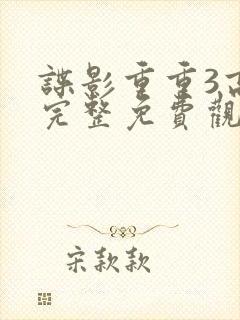 諜影重重3高
完整免費觀
宋款款